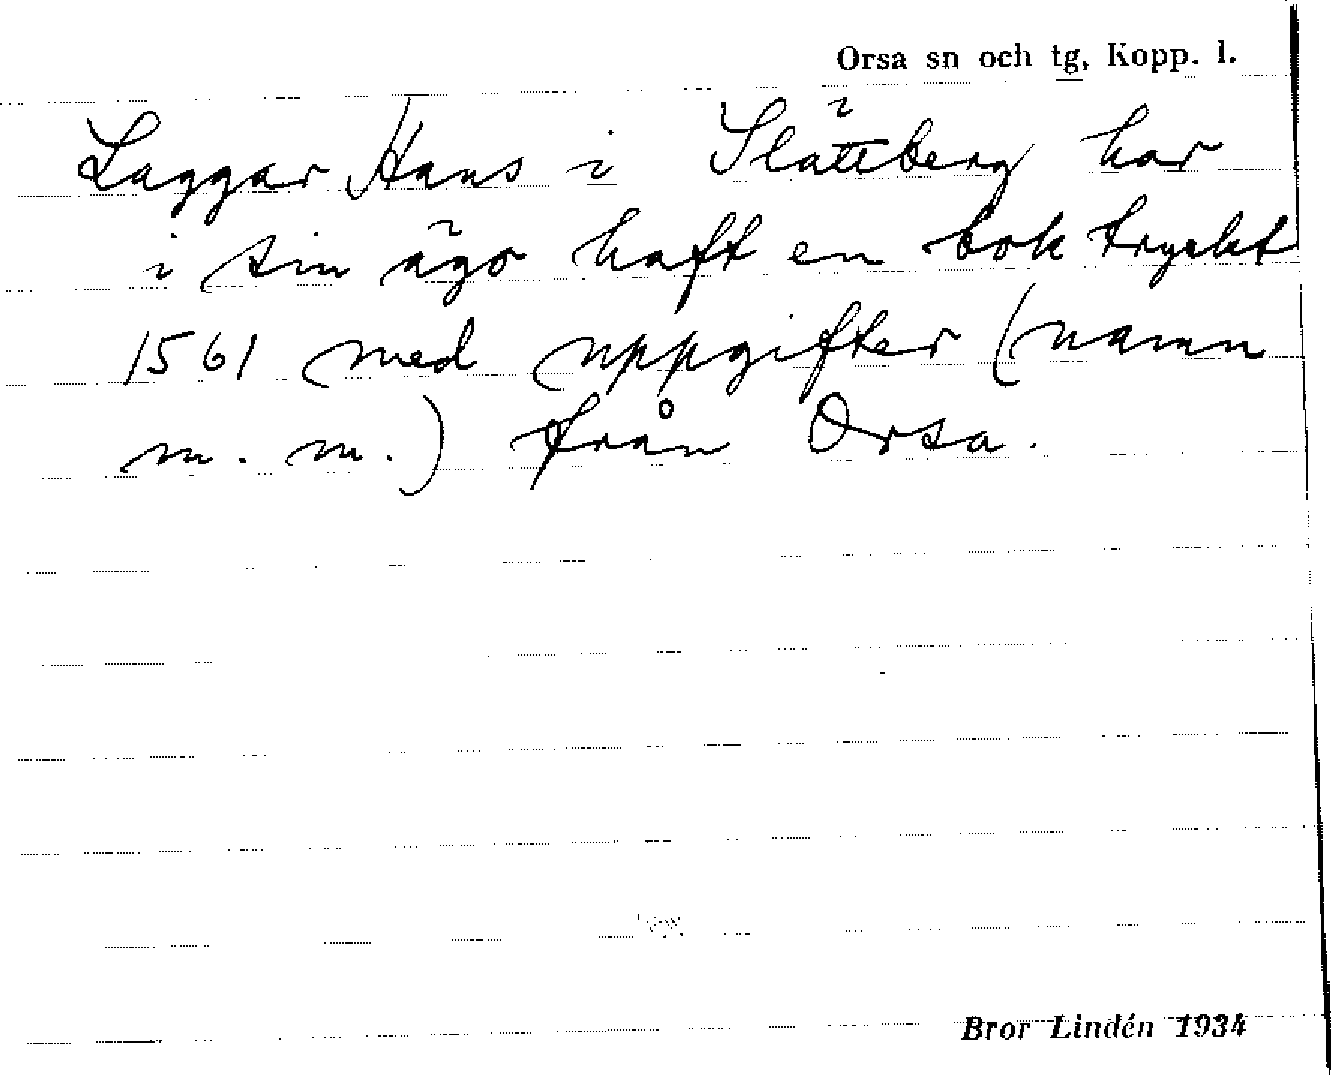 Orsa sn och tg, Kopp. l.
Laggar Hans i Slättberg har
i sin ägo haft en bok tryckt
1561 med uppgifter (namn
m. m.) från Orsa.
Bror Lindén 1934